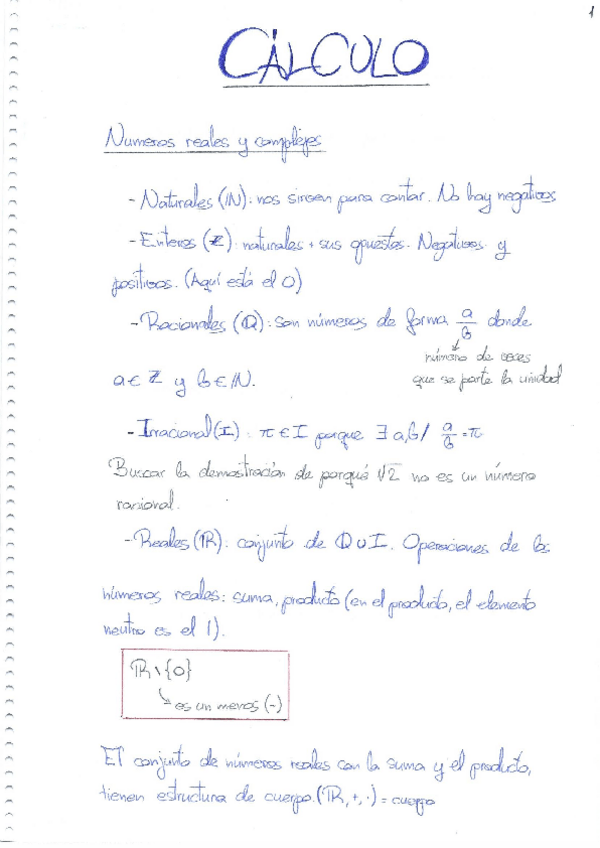 1
CÁLCULO
Numeros reales y complejos
- Naturales (ℕ): nos sirven para contar. No hay negativos
- Enteros (ℤ): naturales + sus opuestos. Negativos y
positivos. (Aquí está el 0)
- Racionales (ℚ): son números de forma a/b donde
número de veces
que se parte la unidad
a ∈ ℤ y b ∈ ℕ.
- Irracional (I): π ∈ I porque ∃ a,b / a/b = π
Buscar la demostración de porqué √2 no es un número
racional.
- Reales (ℝ): conjunto de ℚ ∪ I. Operaciones de los
números reales: suma, producto (en el producto, el elemento
neutro es el 1).
ℝ \ {0}
↳ es un menos (-)
El conjunto de números reales con la suma y el producto,
tienen estructura de cuerpo. (ℝ, +, ·) = cuerpo